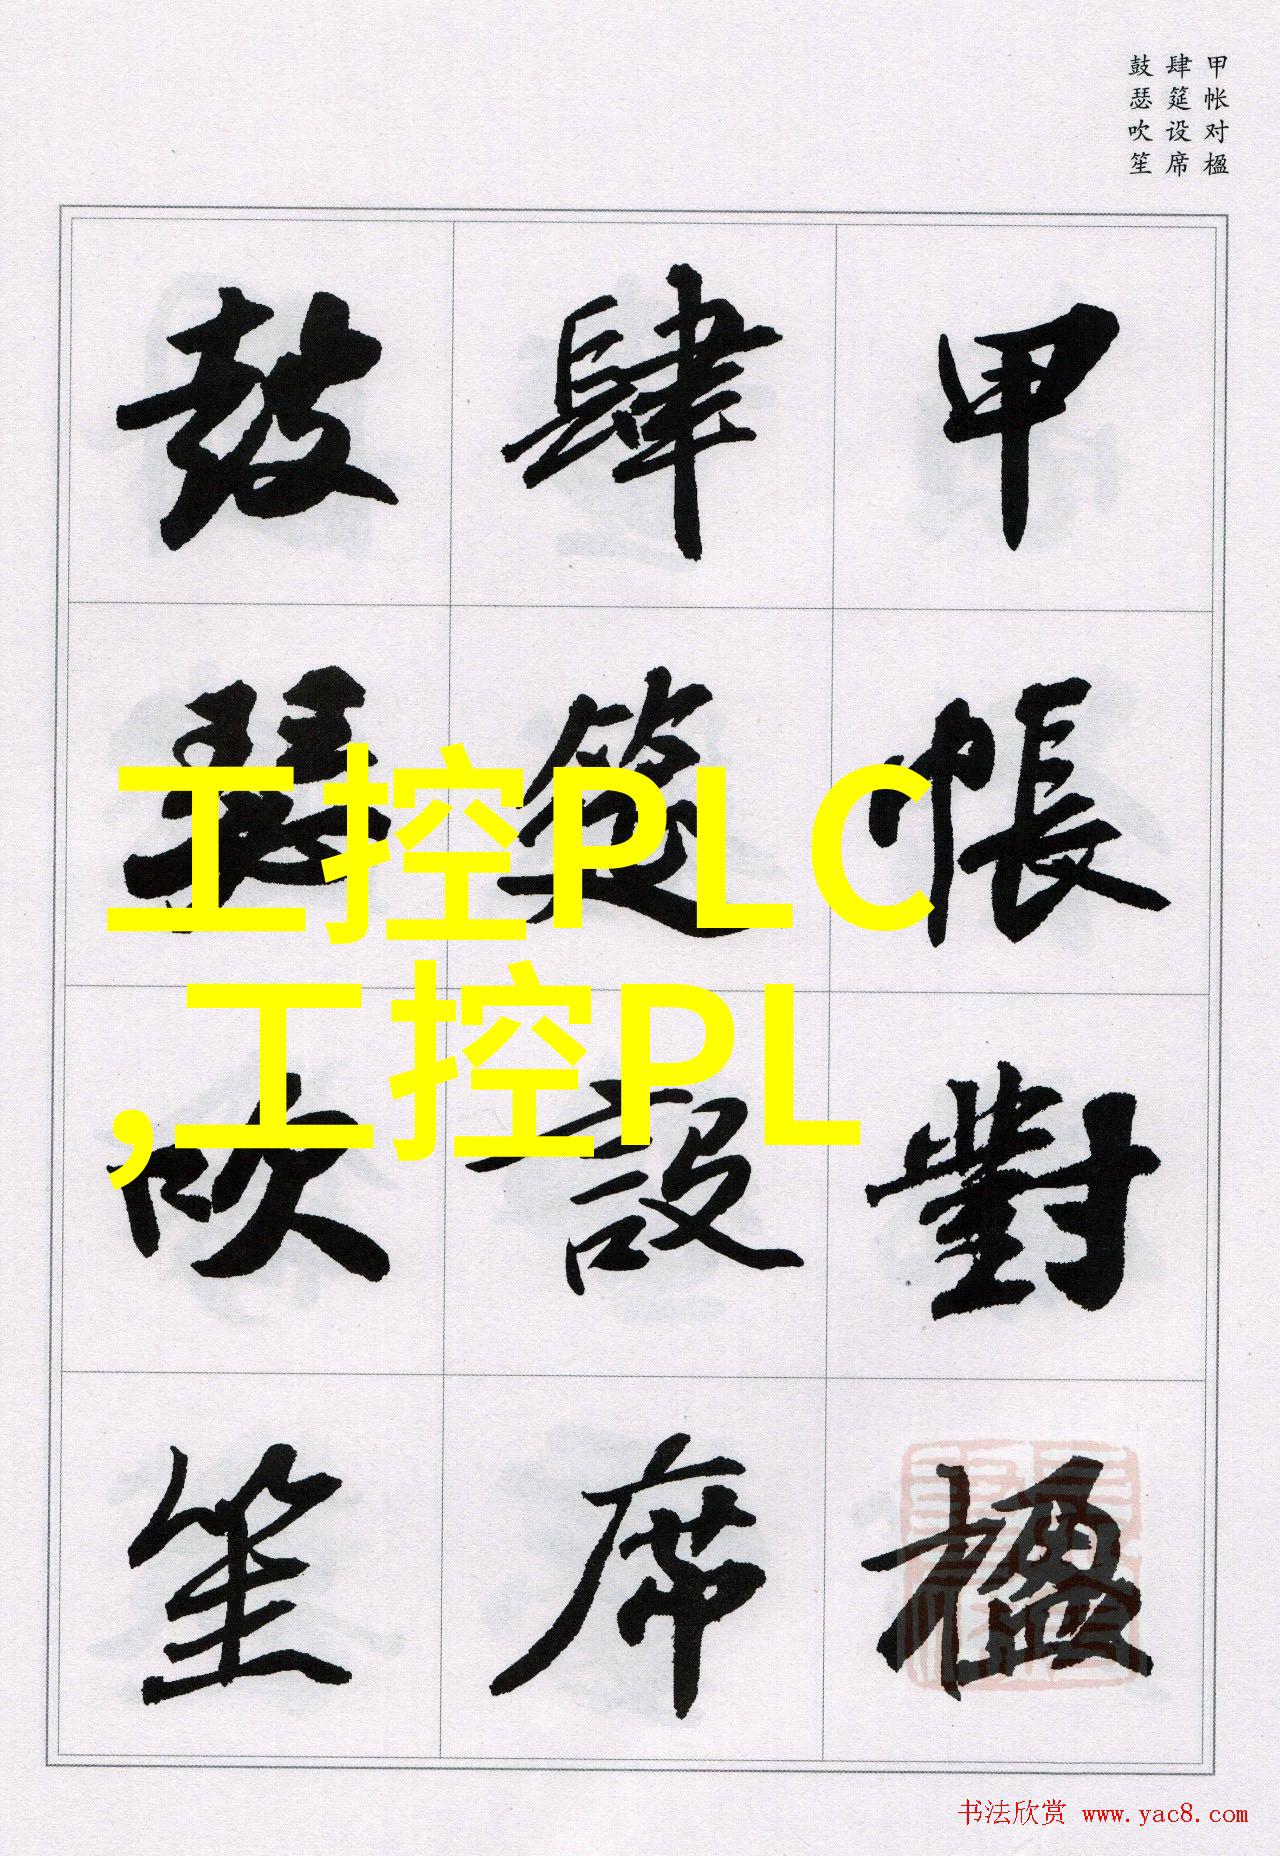 甲帐对楹
肆筵设席
鼓瑟吹笙
甲帳對楹
肆筵設席
鼓瑟吹笙
工控PLC
,工控PL
书法欣赏 www.yac8.com